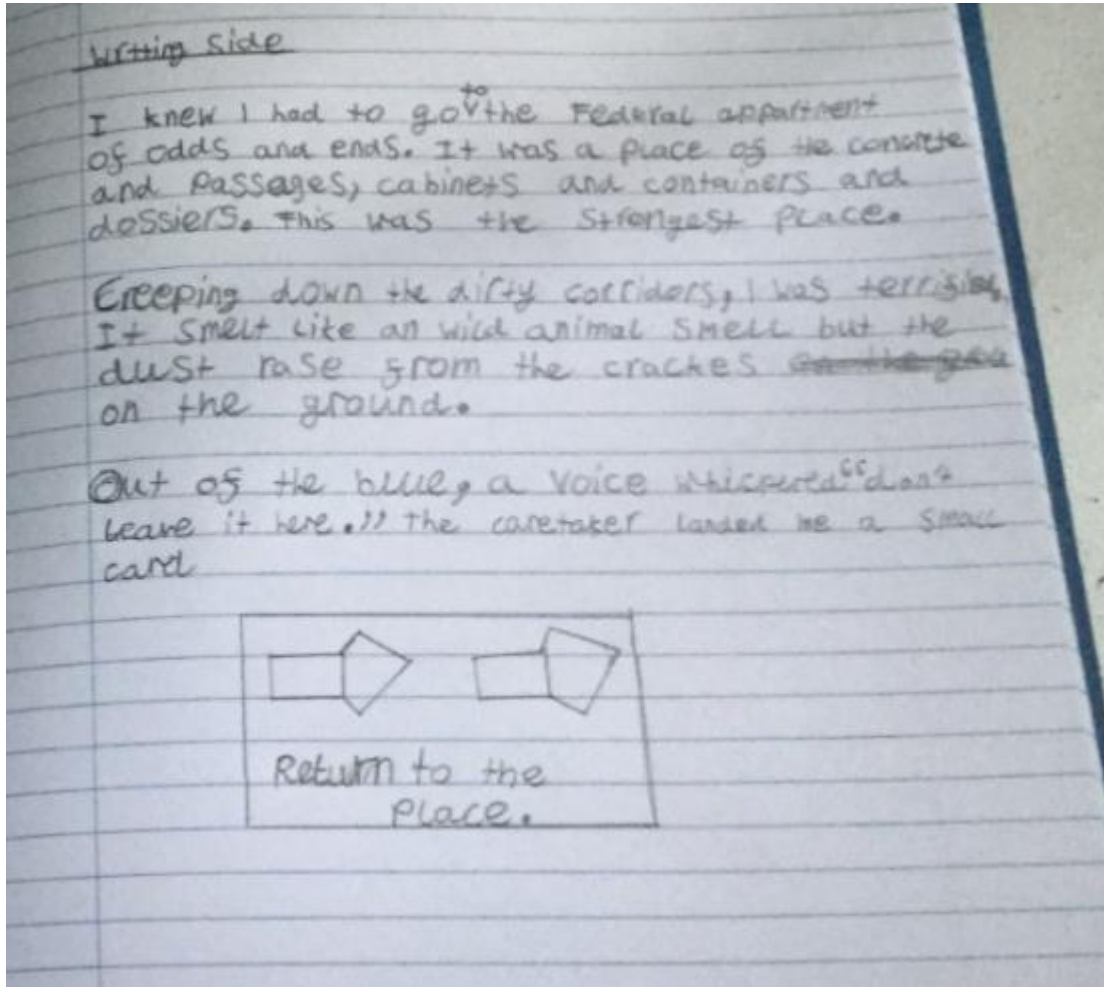 Writting Side
I knew I had to go to the Federal appartment
of odds and ends. It was a place of the concrete
and passages, cabinets and containers and
dossiers. This was the strangest place.
Creeping down the dirty corridors, I was
It smelt like an wild animal smell but the
dust rase from the craches
on the ground.
Out of the blue, a voice whispered “don't
leave it here.” The caretaker landed me a small
card
Return to the
place.